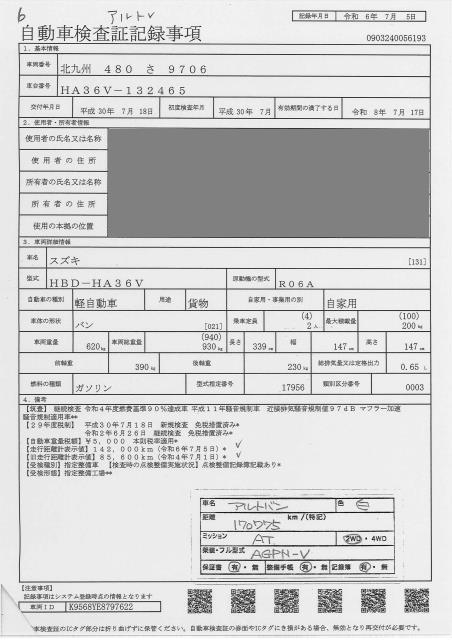 6 アルトV
記録年月日 令和 6年 7月 5日
自動車検査証記録事項
0903240056193
1．基本情報
車両番号 北九州 480 さ 9706
車台番号 HA36V-132465
交付年月日 平成 30年 7月 18日 初度検査年月 平成 30年 7月 有効期間の満了する日 令和 8年 7月 17日
2．使用者・所有者情報
使用者の氏名又は名称
使用者の住所
所有者の氏名又は名称
所有者の住所
使用の本拠の位置
3．車両詳細情報
車名 スズキ [131]
型式 HBD-HA36V 原動機の型式 R06A
自動車の種別 軽自動車 用途 貨物 自家用・事業用の別 自家用
車体の形状 バン [021] 乗車定員 (4) 2人 最大積載量 (100) 200kg
車両重量 620kg 車両総重量 (940) 930kg 長さ 339cm 幅 147cm 高さ 147cm
前軸重 390kg 後軸重 230kg 総排気量又は定格出力 0.65 L
燃料の種類 ガソリン 型式指定番号 17956 類別区分番号 0003
4．備考
継続検査 令和4年度燃費基準90％達成車 平成11年騒音規制車 近接排気騒音規制値97dB マフラー加速
騒音規制適用車**
【29年度税制】 平成30年7月18日 新規検査 免税措置済み*
令和2年6月26日 継続検査 免税措置済み*
【自動車重量税額】¥5,000 本則税率適用*
【走行距離計表示値】142,000km（令和6年7月5日）*
【旧走行距離計表示値】85,600km（令和4年7月1日）*
【受検種別】指定整備車 【検査時の点検整備実施状況】点検整備記録簿記載あり*
【受検形態】指定整備工場**
車名 アルトバン 色 白
距離 170775 km／(特記)
ミッション AT 2WD・4WD
架装・フル型式
保証書 有・無 整備手帳 有・無 記録簿 有・無
【注意事項】
記録事項はシステム登録時点の情報となります
車両ID K9568YE8797622
検査証のICタグ部分は折り曲げずに保管ください。自動車検査証の券面やICタグにき損がある場合、無効となり再交付が必要です。